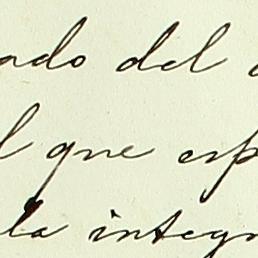 ado del
l que esp
la integr